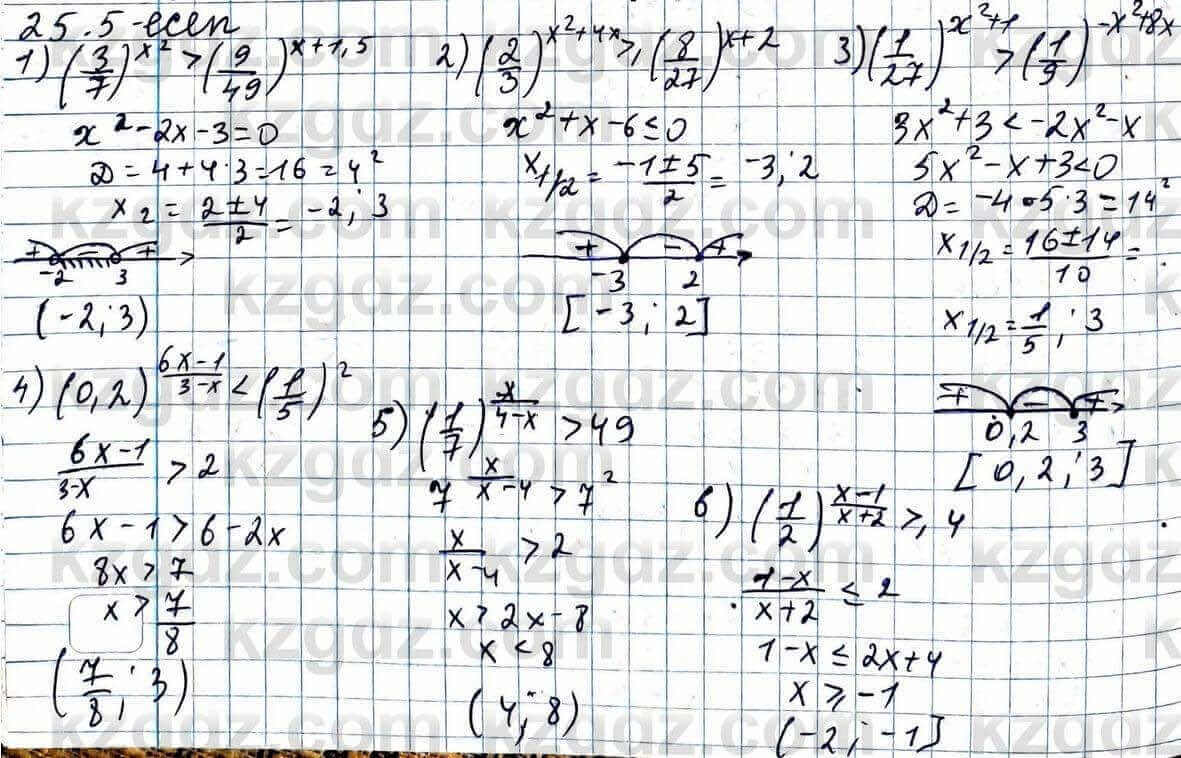 25.5-есеп
1) (3/7)^x² > (9/49)^x+1,5
x² - 2x - 3 = 0
D = 4 + 4·3 = 16 = 4²
x₂ = (2±4)/2 = -2; 3
+ - +
-2 3
(-2; 3)
2) (2/3)^x²+4x ≥ (8/27)^x+2
x² + x - 6 ≤ 0
x₁/₂ = (-1±5)/2 = -3; 2
+ - +
-3 2
[-3; 2]
3) (1/27)^x²+1 > (1/9)^-x²+8x
3x² + 3 < -2x² - x
5x² - x + 3 < 0
D = -4·5·3 = 14²
x₁/₂ = (16±14)/10 =
x₁/₂ = 1/5; 3
+ - +
0,2 3
[0,2; 3]
4) (0,2)^(6x-1)/(3-x) < (1/5)²
(6x-1)/(3-x) > 2
6x - 1 > 6 - 2x
8x > 7
x > 7/8
(7/8; 3)
5) (1/7)^x/(4-x) > 49
7^x/(x-4) > 7²
x/(x-4) > 2
x > 2x - 8
x < 8
(4; 8)
6) (1/2)^(x-1)/(x+2) ≥ 4
(1-x)/(x+2) ≤ 2
1 - x ≤ 2x + 4
x ≥ -1
(-2; -1]
kzgdz.com